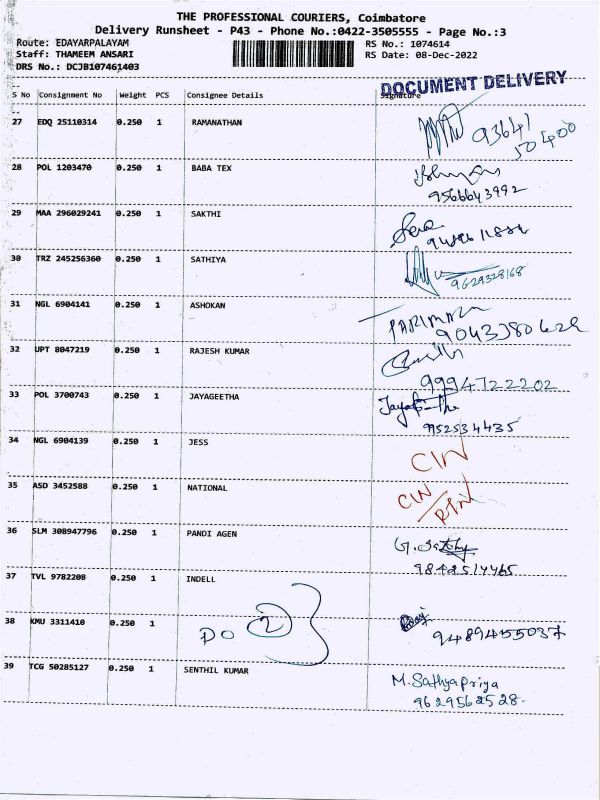 THE PROFESSIONAL COURIERS, Coimbatore
Delivery Runsheet - P43 - Phone No.:0422-3505555 - Page No.:3
Route: EDAYARPALAYAM RS No.: 1074614
Staff: THAMEEM ANSARI RS Date: 08-Dec-2022
DRS No.: DCJB107461403
DOCUMENT DELIVERY
S No Consignment No Weight PCS Consignee Details Signature
27 EDQ 25110314 0.250 1 RAMANATHAN 93641
50400
28 POL 1203470 0.250 1 BABA TEX
9566643992
29 MAA 296029241 0.250 1 SAKTHI
30 TRZ 245256360 0.250 1 SATHIYA
9629328168
31 NGL 6904141 0.250 1 ASHOKAN
32 UPT 8047219 0.250 1 RAJESH KUMAR
9994722202
33 POL 3700743 0.250 1 JAYAGEETHA
9952534435
34 NGL 6904139 0.250 1 JESS CIN
35 ASD 3452588 0.250 1 NATIONAL CIN
RTN
36 SLM 308947796 0.250 1 PANDI AGEN G. Sathy
9842517465
37 TVL 9782208 0.250 1 INDELL
38 KMU 3311410 0.250 1 DO 2
9489455037
39 TCG 50285127 0.250 1 SENTHIL KUMAR M. Sathyapriya
9629562528